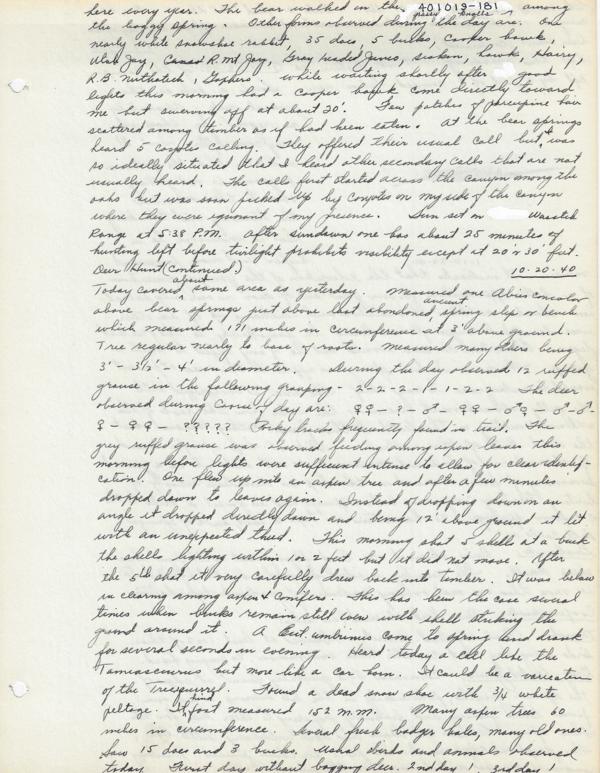 here every year. The bear walked in the grassy knolls among
401019-181
the boggy spring. Other forms observed during the day are: One
nearly white snowshoe rabbit, 35 does, 5 bucks, Cooper hawk,
Utah Jay, R. Mt. Jay, Gray headed Junco, siskin, hawk, Hairy,
R.B. Nuthatch, Gophers. While waiting shortly after good
lights this morning had a Cooper hawk come directly toward
me but swerving off at about 20'. Few patches of porcupine hair
scattered among timber as if had been eaten. At the bear springs
heard 5 coyotes calling. They offered their usual call but, I was
so ideally situated that I heard other secondary calls that are not
usually heard. The calls first started across the canyon among the
oaks but was soon picked up by Coyotes on my side of the canyon
where they were ignorant of my presence. Sun set on Wasatch
Range at 5:38 P.M. After sundown one has about 25 minutes of
hunting left before twilight prohibits visibility except at 20' or 30' feet.
Our Hunt (Continued.) 10-20-40
Today covered about same area as yesterday. Measured one Abies concolor
above bear springs just above last abandoned ancient spring slip or bench
which measured 171 inches in circumference at 3' above ground.
Tree regular nearly to base of roots. Measured many others being
3' - 3 1/2' - 4' in diameter. During the day observed 12 ruffed
grouse in the following grouping - 2-2-2-1-1-2-2 The deer
observed during day are: ♀♀ - ? - ♂ - ♀♀ - ♂♀ - ♂ - ♂ -
♀ - ♀♀ - ????? Porky tracks frequently found in trail. The
grey ruffed grouse was observed feeding among aspen leaves this
morning before lights were sufficient intense to allow for clear identif-
cation. One flew up into an aspen tree and after a few minutes
dropped down to leaves again. Instead of dropping down on an
angle it dropped directly down and being 12' above ground it lit
with an unexpected thud. This morning shot 5 shells at a buck
the shells lighting within 1 or 2 feet but it did not move. After
the 5th shot it very carefully drew back into timber. It was below
in clearing among aspen & conifers. This has been the case several
times when bucks remain still even with shell striking the
ground around it. A But. umbrinus come to spring and drank
for several seconds in evening. Heard today a call like the
Tamiasciurus but more like a car horn. It could be a variation
of the Treesquirrel. Found a dead snow shoe with 3/4 white
peltage. It's hind foot measured 152 m.m. Many aspen trees 60
inches in circumference. Several fresh badger holes, many old ones.
Saw 15 does and 3 bucks. Usual birds and animals observed
today. First day without bagging deer. 2nd day 1 3rd day 1